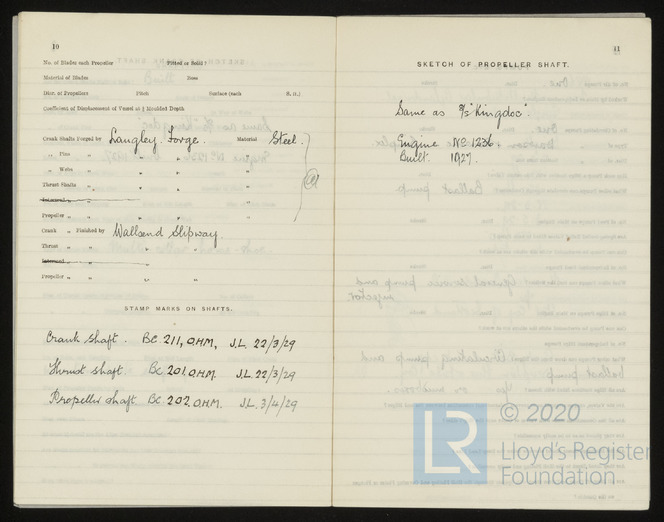 10
No. of Blades each Propeller Fitted or Solid?
Material of Blades Boss
Diar. of Propellers Pitch Surface (each S. ft.)
Coefficient of Displacement of Vessel at ⅔ Moulded Depth
Crank Shafts Forged by Langley Forge. Material Steel.
„ Pins „ „ „
„ Webs „ „ „
Thrust Shafts „ „ „
Internal „ „ „
Propeller „ „ „ „
Crank „ Finished by Wallsend Slipway.
Thrust „ „ „
Internal „ „
Propeller „ „ „
STAMP MARKS ON SHAFTS.
Crank Shaft. BC 211, O.H.M, J.L. 22/3/29
Thrust shaft BC 201. O.H.M. J.L. 22/3/29
Propeller shaft BC 202. O.H.M. J.L. 3/4/29
11
SKETCH OF PROPELLER SHAFT.
Same as S/S "Kingdoc".
Engine No 1236
Built. 1927.
© 2020
LR
Lloyd's Register
Foundation